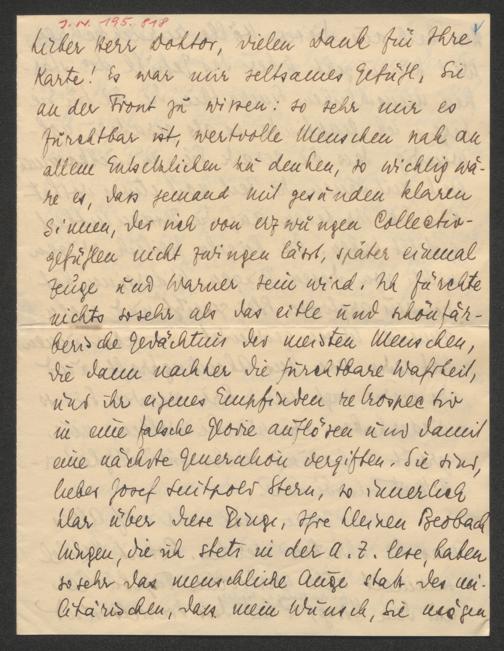 J. N. 195.818
Lieber Herr Doktor, vielen Dank für Ihre
Karte! Es war mir seltsames Gefühl, Sie
an der Front zu wissen: so sehr mir es
furchtbar ist, wertvolle Menschen nah an
allem Entsetzlichen zu denken, so wichtig wä-
re es, dass jemand mit gesunden klaren
Sinnen, der sich von erzwungen Collectiv-
gefühlen nicht zwingen lässt, später einmal
Zeuge und Warner sein wird. Ich fürchte
nichts sosehr als das eitle und schönfär-
berische Gedächtnis der meisten Menschen,
die dann nachher die furchtbare Wahrheit,
und ihr eigenes Empfinden retrospectiv
in eine falsche Glorie auflösen und damit
eine nächste Generation vergiften. Sie sind,
lieber Josef Luitpold Stern, so innerlich
klar über diese Dinge, Ihre kleinen Beobach
tungen, die ich stets in der A. Z. lese, haben
sosehr das menschliche Auge statt des mi-
litärischen, dass mein Wunsch, Sie mögen